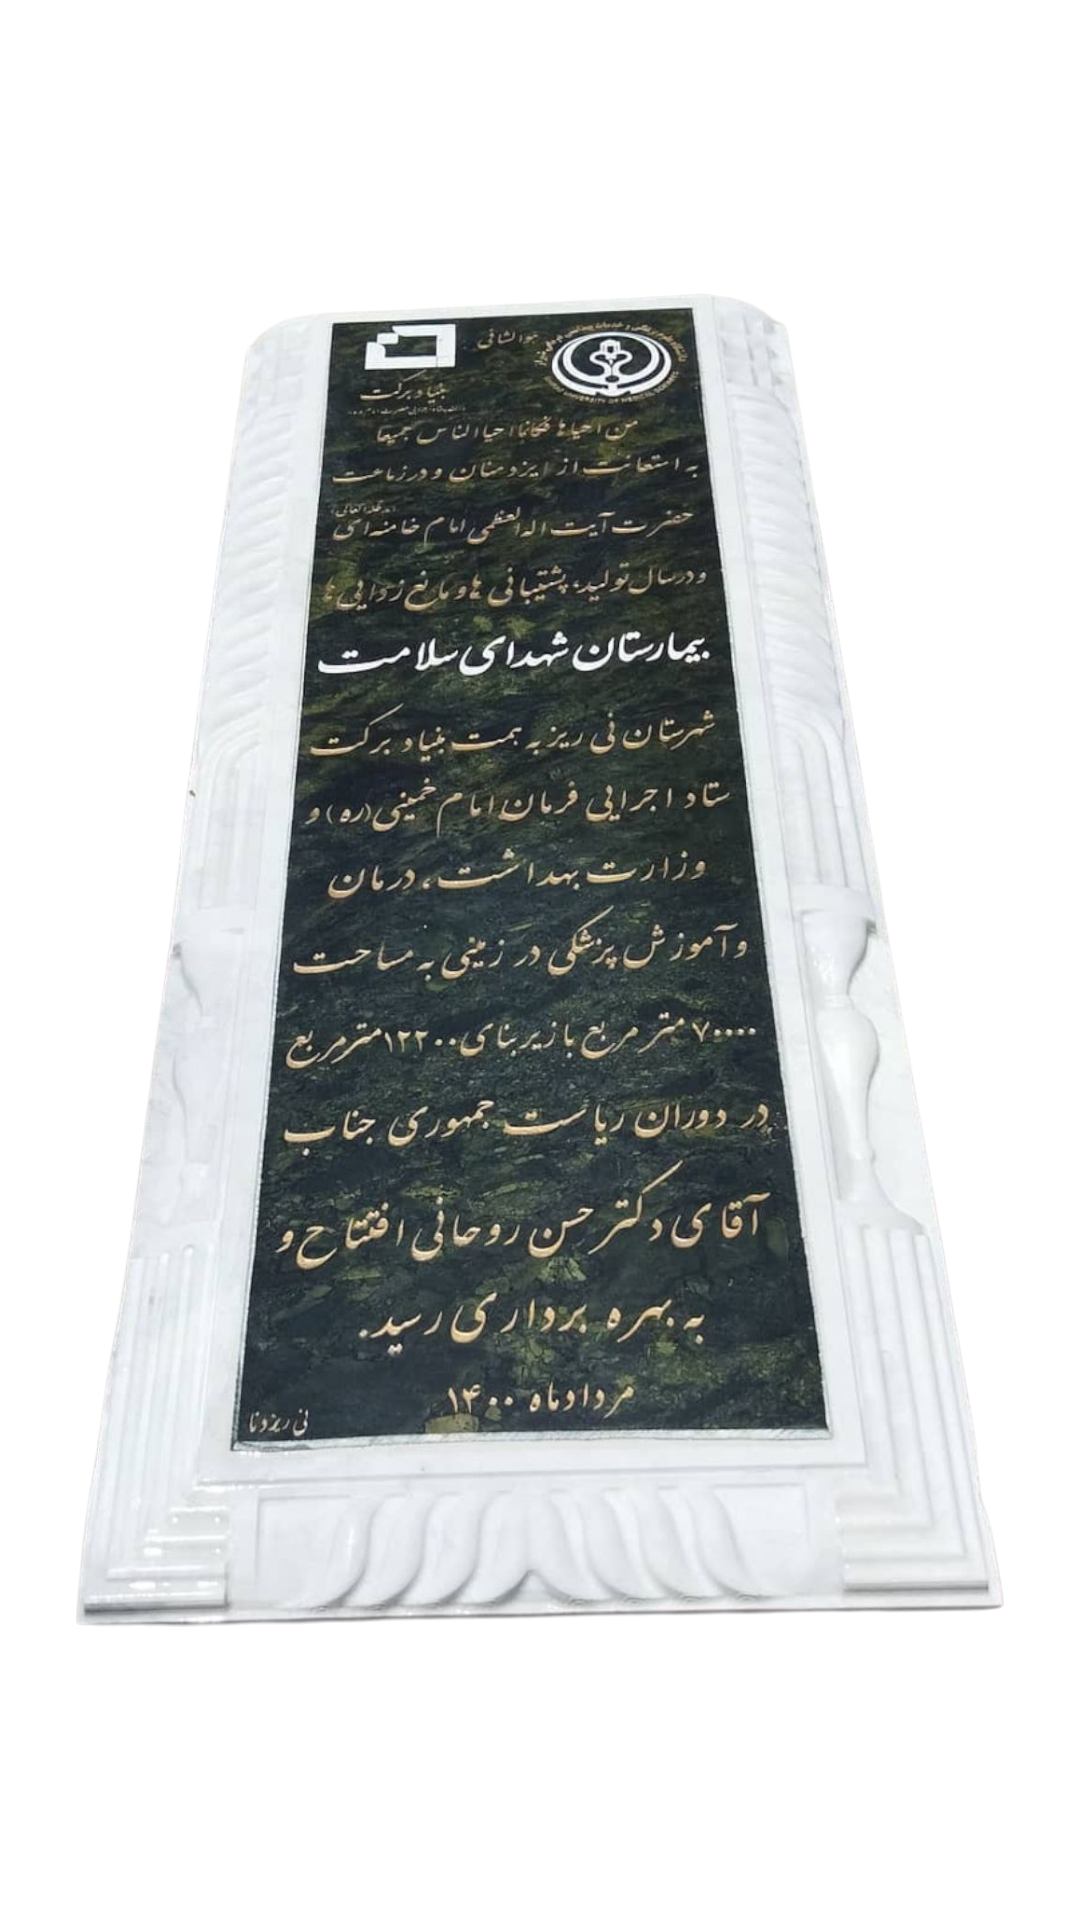 هوالشافی
بنیاد برکت
UNIVERSITY OF MEDICAL SCIENCES
من احیاها فکانما احیا الناس جمیعا
به استعانت از ایزد منان و در زعامت
حضرت آیت اله العظمی امام خامنه ای (مدظله العالی)
و در سال تولید، پشتیبانی ها و مانع زدایی ها
بیمارستان شهدای سلامت
شهرستان نی ریز به همت بنیاد برکت
ستاد اجرایی فرمان امام خمینی (ره) و
وزارت بهداشت، درمان
و آموزش پزشکی در زمینی به مساحت
۷۰۰۰۰ متر مربع با زیربنای ۱۲۲۰۰ متر مربع
در دوران ریاست جمهوری جناب
آقای دکتر حسن روحانی افتتاح و
به بهره برداری رسید.
مردادماه ۱۴۰۰
نی ریزدنا